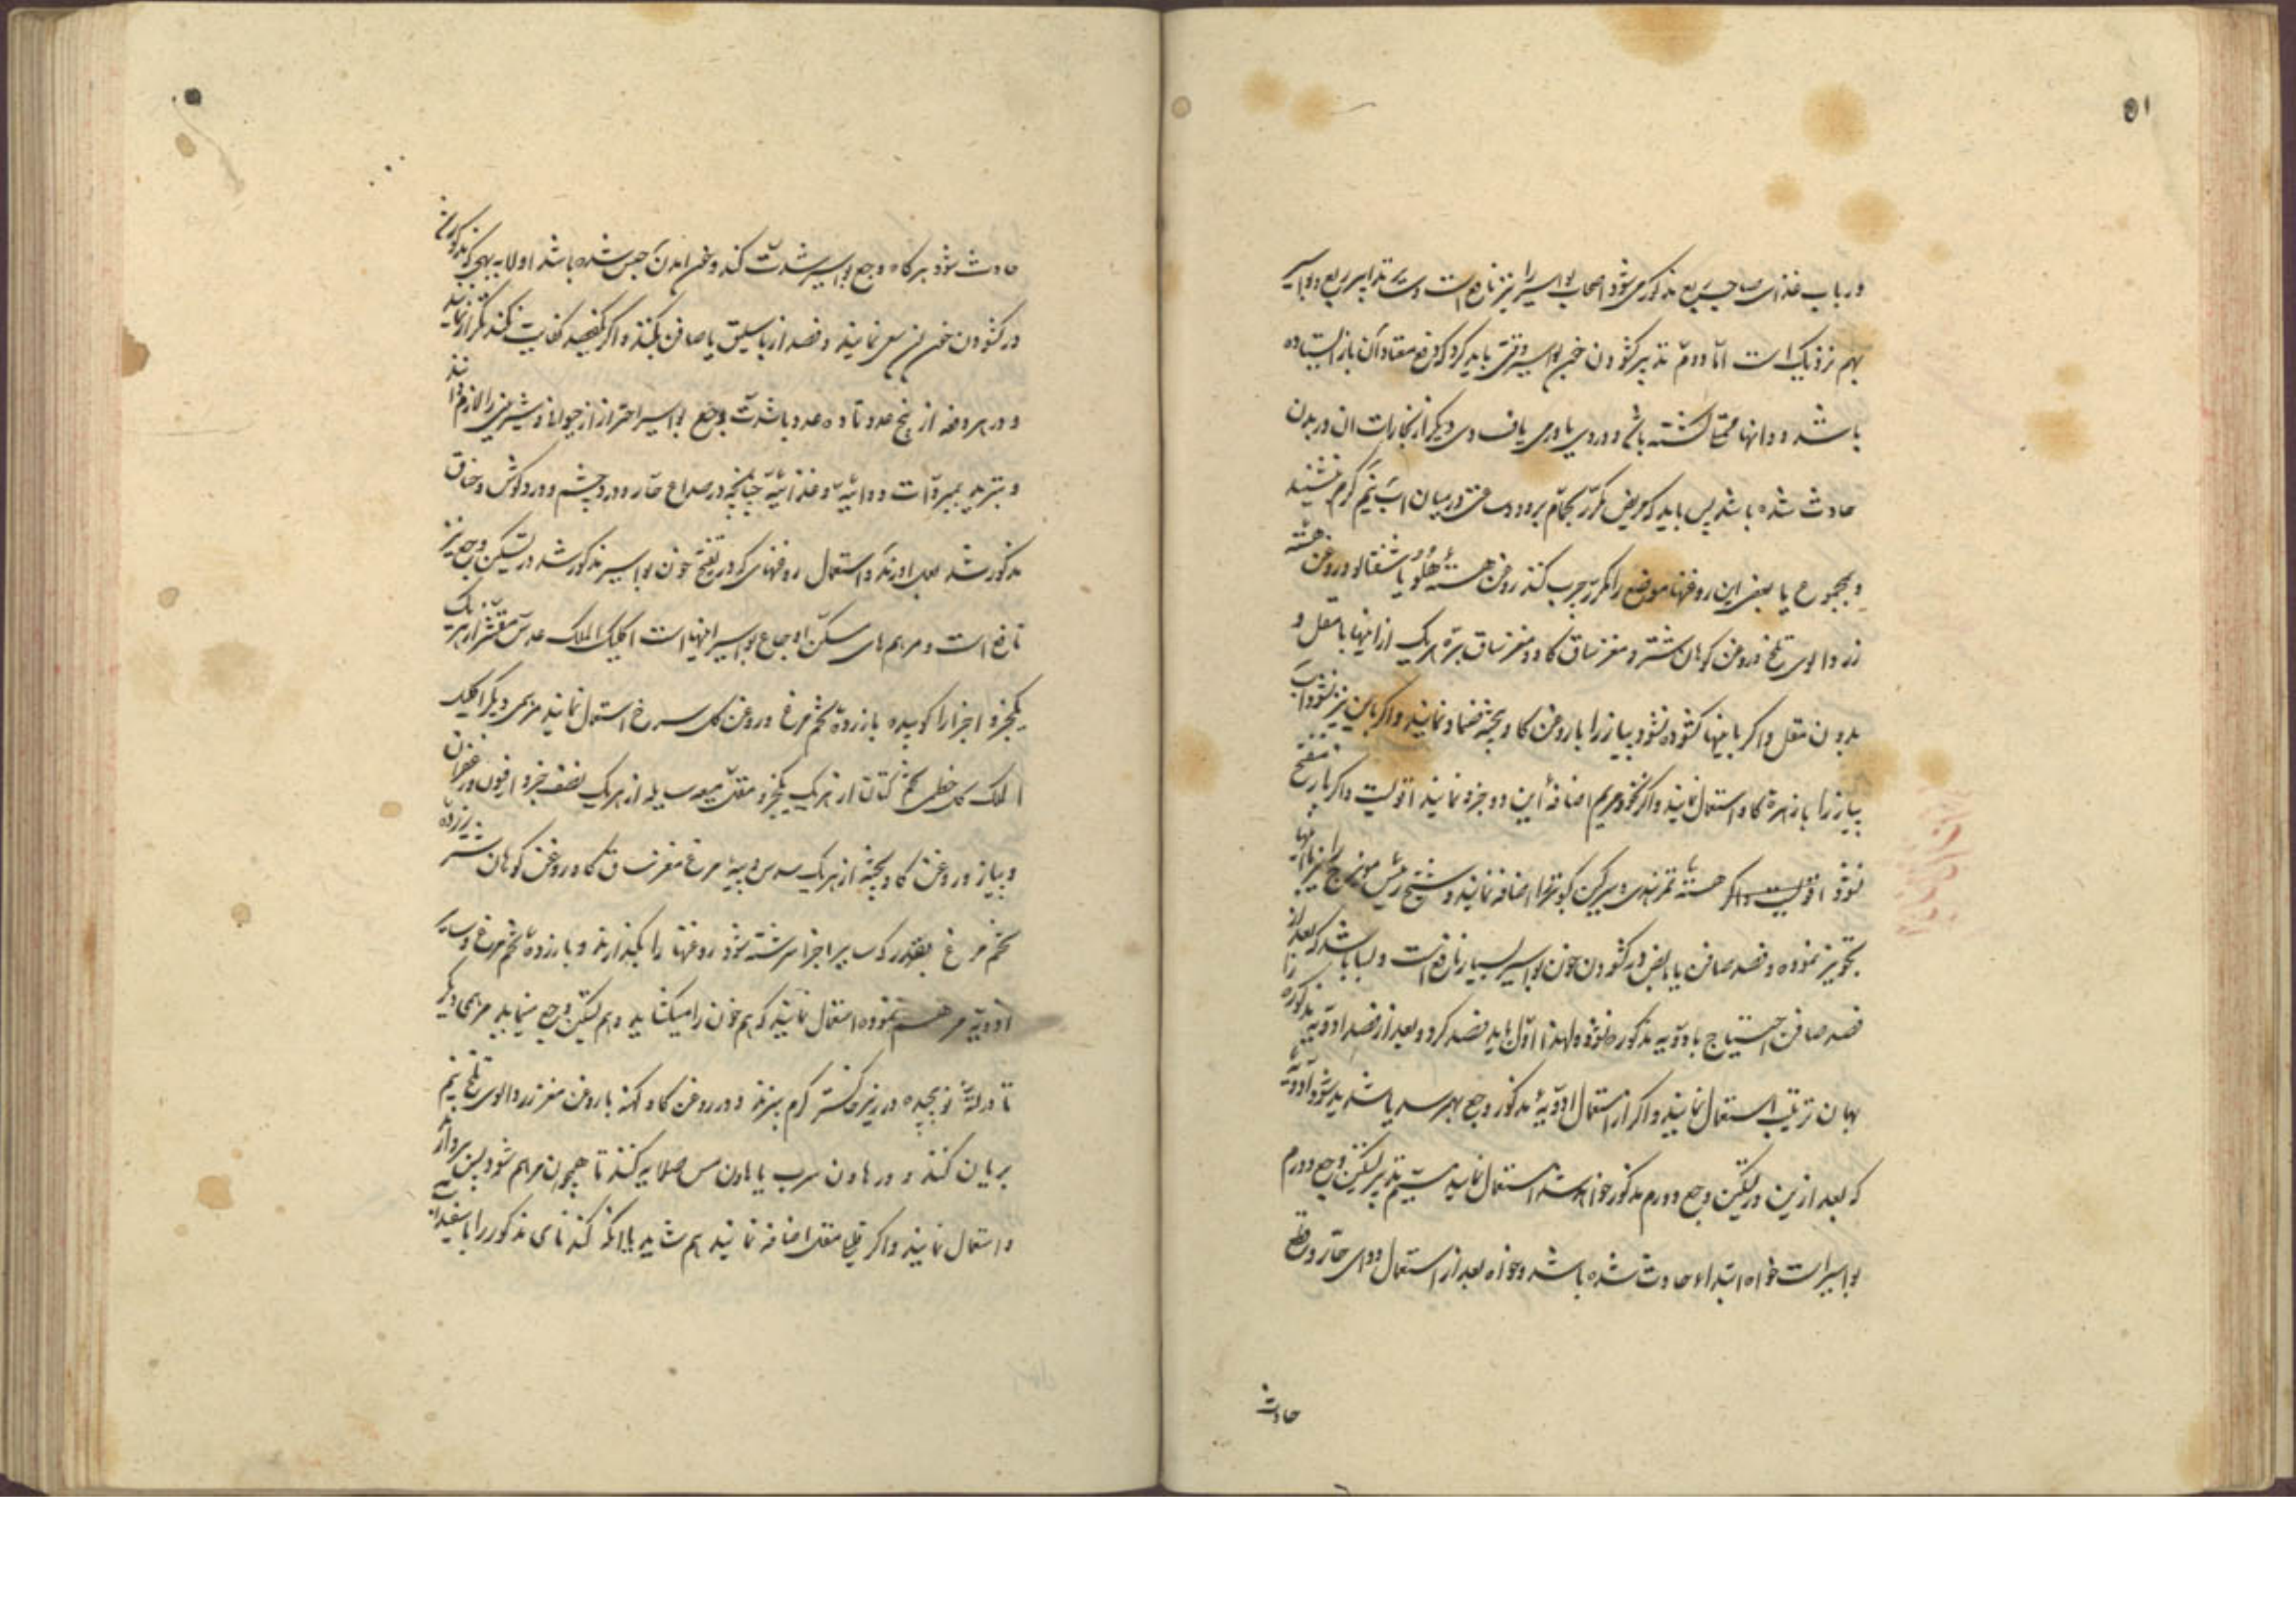 ۵۱
در باب غذای صاحب ریع مذکور می شود اصحاب بواسیر را نیز نافع است و تدابیر ریع و بواسیر
بهم نزدیک است اما دوم تدبیر کشودن خون بواسیر وقتی باید کرد که دفع معتاد آن باز ایستاده
باشد و دانها ممتلی کشته باشد و دردی یا ورمی یا فسادی دیکر از بخارات آن در بدن
حادث شده باشد پس باید که مریض مکرر بحمام برود و ساعتی در میان آب نیم کرم نشیند
و بمجموع یا بعضی این روغنها موضع را مکرر چرب کند روغن هسته هلو یا شفتالو و روغن هسته
زردالوی تلخ و روغن کوهان شتر و مغز ساق کاو و مغز ساق بره هر یک از اینها با مقل و
بدون مقل و اکر باینها کشوده نشود پیاز را با روغن کاو پخته ضماد نمایند و اکر باین نیز نشود آب
پیاز را با زهره کاو استعمال نمایند و اکر بخور مریم اضافه این دو جزو نمایند اقویست و اکر باز منفتح
نشود اقویست و اکر هسته تمر هندی و سرکین کبوتر را اضافه نمایند و شیخ رئیس مویزج را نیز با اینها
تجویز نموده و فصد صافن یا مابض در کشودن خون بواسیر بسیار نافع است و بسا باشد که بعد از
فصد صافن احتیاج بادویه مذکوره نشود و لهذا اول باید فصد کرد و بعد از فصد ادویه مذکوره را
بهمان ترتیب استعمال نمایند و اکر از استعمال ادویه مذکور وجع بهم رسد یا شدید شود ادویه
که بعد ازین در تسکین وجع و ورم مذکور خواهد شد استعمال نمایند سیم تدبیر تسکین وجع و ورم
بواسیر است خواه ابتداء حادث شده باشد و خواه بعد از استعمال دوای حار و قطع
حادث
حادث شود هر کاه وجع بواسیر شدت کند و خون آمدن حبس شده باشد اولا به نهجی که مذکور شد
در کشودن خون آن سعی نمایند و فصد از باسلیق یا صافن بکنند و اکر یک فصد کفایت نکند تکرار نمایند
و در هر دفعه از پنج عدد تا ده عدد باشدت وجع بواسیر احتراز از حیوانی و شیرینی را لازم دانند
و تبرید بمبردات دوائیه و غذائیه چنانچه در صداع حار و درد چشم و درد کوش و خناق
مذکور شد بعمل آورند و استعمال روغنهای که در تفتیح خون بواسیر مذکور شد در تسکین وجع نیز
نافع است و مرهم های مسکن اوجاع بواسیر اینها است اکلیل الملک عدس مقشر از هر یک
یکجزو اجزا را کوبیده با زرده تخم مرغ و روغن کل سرخ استعمال نمایند مرهمی دیکر اکلیل
الملک کل خطمی تخم کتان از هر یک یکجزو مقل میعه سایله از هر یک نصف جزو افیون و زعفران
و پیاز و روغن کاو پخته از هر یک سدس و پیه مرغ مغز ساق کاو روغن کوهان شتر زرده
تخم مرغ بقدر که سایر اجزا سرشته شود روغنها را بکدازند و با زرده تخم مرغ و سایر
ادویه مرهم نموده استعمال نمایند که هم خون را میکشاید و هم تسکین وجع مینماید مرهمی دیکر
بریان کنند و در هاون سرب یا هاون مس صلایه کنند تا همچون مرهم شود پس بردارند
و استعمال نمایند و اکر قلیلی مقل اضافه نمایند هم شاید یا انکه کندنای مذکور را با سفیداب